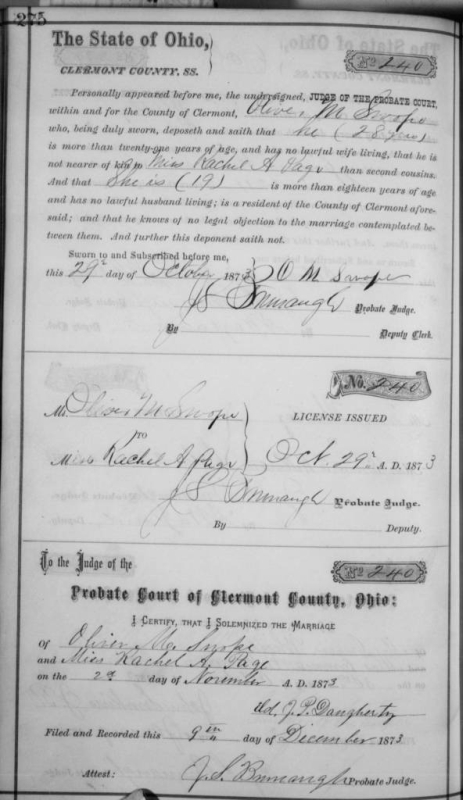 275
The State of Ohio,
CLERMONT COUNTY, SS.
No 240
Personally appeared before me, the undersigned, JUDGE OF THE PROBATE COURT,
within and for the County of Clermont, Oliver M Swope
who, being duly sworn, deposeth and saith that he (28 years)
is more than twenty-one years of age, and has no lawful wife living, that he is
not nearer of kin to Miss Rachel A Page than second cousins.
And that She is (19) is more than eighteen years of age
and has no lawful husband living; is a resident of the County of Clermont afore-
said; and that he knows of no legal objection to the marriage contemplated be-
tween them. And further this deponent saith not.
Sworn to and Subscribed before me,
this 29" day of October 1873 } O M Swope
J S Brunaugh Probate Judge.
By Deputy Clerk.
No. 240
Mr Oliver M Swope
TO
Miss Rachel A Page
LICENSE ISSUED
Oct. 29" A. D. 1873
J S Brunaugh Probate Judge.
By Deputy.
To the Judge of the
No 240
Probate Court of Clermont County, Ohio:
I CERTIFY, THAT I SOLEMNIZED THE MARRIAGE
Of Oliver M. Swope
and Miss Rachel A. Page
on the 2d day of November A. D. 1873
J. P. Daugherty
Filed and Recorded this 9th day of December 1873
Attest: J. S. Brunaugh Probate Judge.